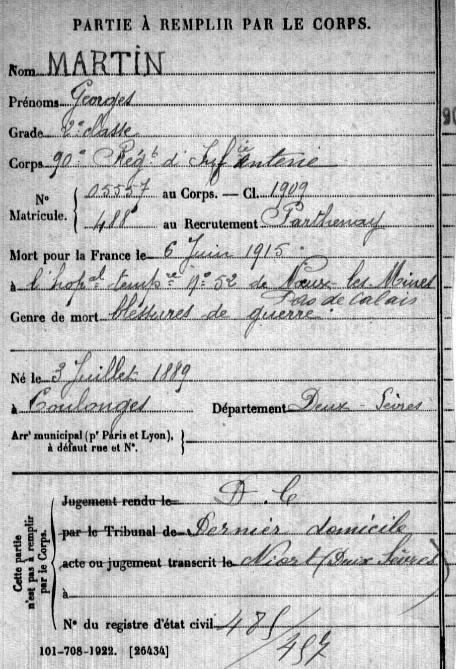 PARTIE À REMPLIR PAR LE CORPS.
Nom MARTIN
Prénoms Georges
Grade 2e classe
Corps 90e Régt d'Infanterie
N° Matricule. { 05557 au Corps. — Cl. 1909
488 au Recrutement Parthenay
Mort pour la France le 6 Juin 1915
à l'hopal tempre n° 52 de Nœux-les-Mines
Pas de Calais
Genre de mort bléssures de guerre
Né le 3 Juillet 1889
à Coulonges Département Deux-Sèvres
Arrt municipal (pr Paris et Lyon), à défaut rue et N°. }
Cette partie n'est pas à remplir par le Corps.
Jugement rendu le D. C
par le Tribunal de Dernier domicile
acte ou jugement transcrit le Niort (Deux Sèvres)
à
N° du registre d'état civil 485/457
101-708-1922. [26434]
90